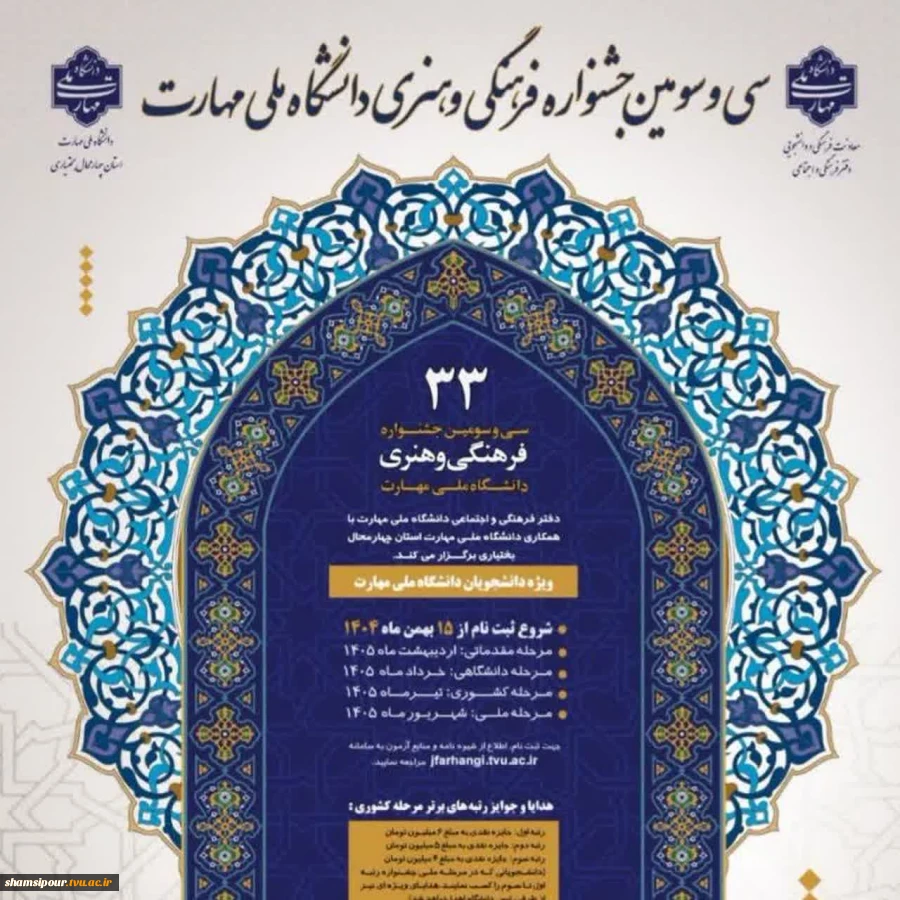 سی و سومین جشنواره فرهنگی و هنری دانشگاه ملی مهارت
دانشگاه ملی مهارت
معاونت فرهنگی و دانشجویی
دفتر فرهنگی و اجتماعی
دانشگاه ملی مهارت
دانشگاه ملی مهارت
استان چهارمحال و بختیاری
۳۳
سی و سومین جشنواره
فرهنگی و هنری
دانشگاه ملی مهارت
دفتر فرهنگی و اجتماعی دانشگاه ملی مهارت با
همکاری دانشگاه ملی مهارت استان چهارمحال
بختیاری برگزار می کند.
ویژه دانشجویان دانشگاه ملی مهارت
شروع ثبت نام از ۱۵ بهمن ماه ۱۴۰۴
مرحله مقدماتی: اردیبهشت ماه ۱۴۰۵
مرحله دانشگاهی: خرداد ماه ۱۴۰۵
مرحله کشوری: تیر ماه ۱۴۰۵
مرحله ملی: شهریور ماه ۱۴۰۵
جهت ثبت نام، اطلاع از شیوه نامه و منابع آزمون به سامانه
jfarhangi.tvu.ac.ir مراجعه نمایید.
هدایا و جوایز رتبه های برتر مرحله کشوری :
رتبه اول: جایزه نقدی به مبلغ ۶ میلیون تومان
رتبه دوم: جایزه نقدی به مبلغ ۵ میلیون تومان
رتبه سوم: جایزه نقدی به مبلغ ۴ میلیون تومان
(دانشجویانی که در مرحله ملی جشنواره رتبه
اول تا سوم را کسب نمایند، هدایای ویژه ای نیز
shamsipour.tvu.ac.ir